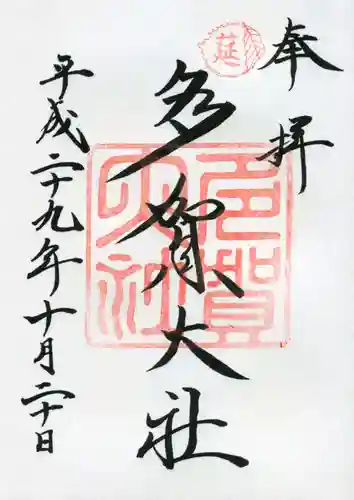 奉拝
多賀大社
平成二十九年十月二十日
延
多賀大社